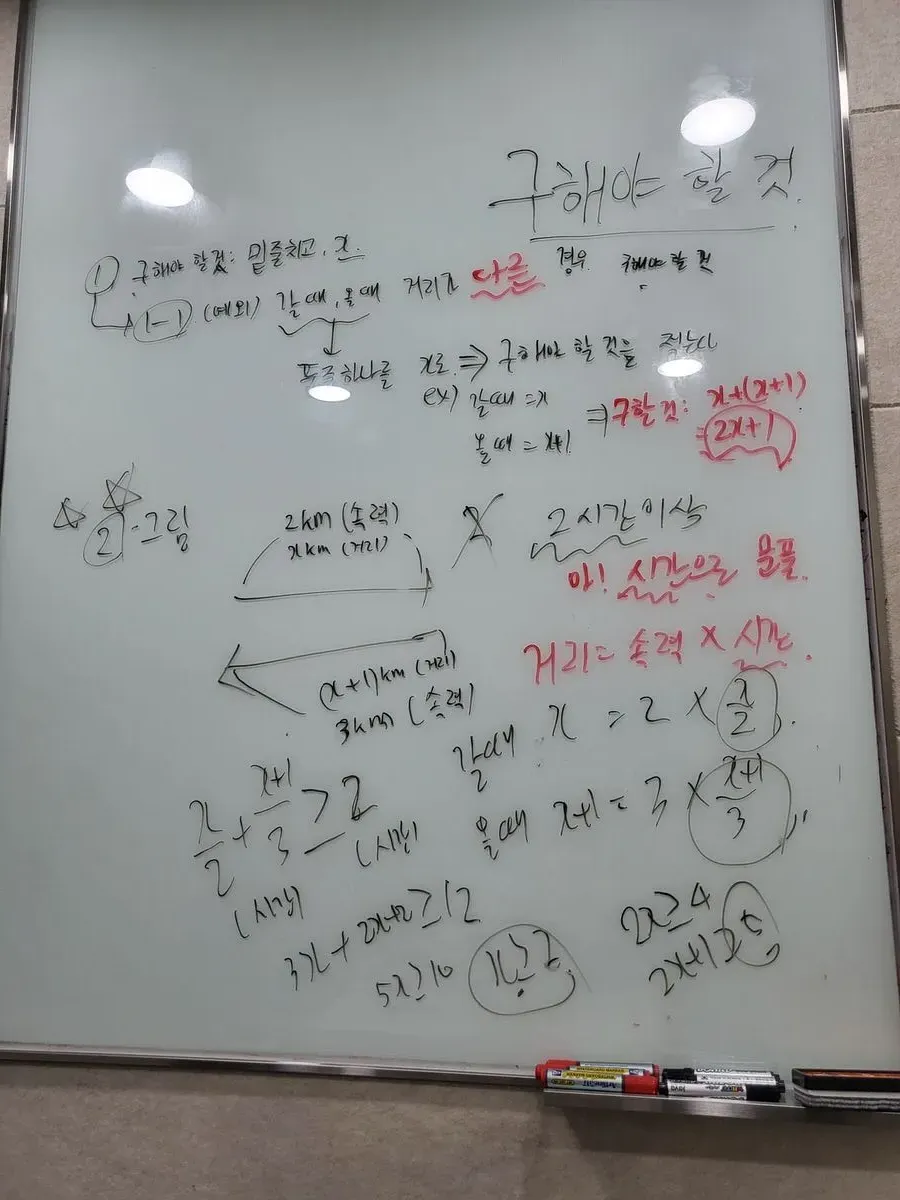 구해야 할 것.
① 구해야 할것: 밑줄치고, x.
1-1 (예외) 갈때, 올때 거리가 다른 경우 구해야 할 것
둘중하나를 x로 ⇒ 구해야 할 것을 적는다
ex) 갈때 = x
올때 = x+1
⇒ 구할것: x+(x+1)
= 2x+1
② 그림
2km (속력)
xkm (거리)
2시간이상
아! 시간으로 문풀.
(x+1)km (거리)
3km (속력)
거리 = 속력 × 시간.
갈때 x = 2 × x/2.
올때 x+1 = 3 × (x+1)/3
x/2 + (x+1)/3 ≥ 2
(시간) (시간)
3x + 2x+2 ≥ 12
5x ≥ 10
x ≥ 2
2x ≥ 4
2x+1 ≥ 5